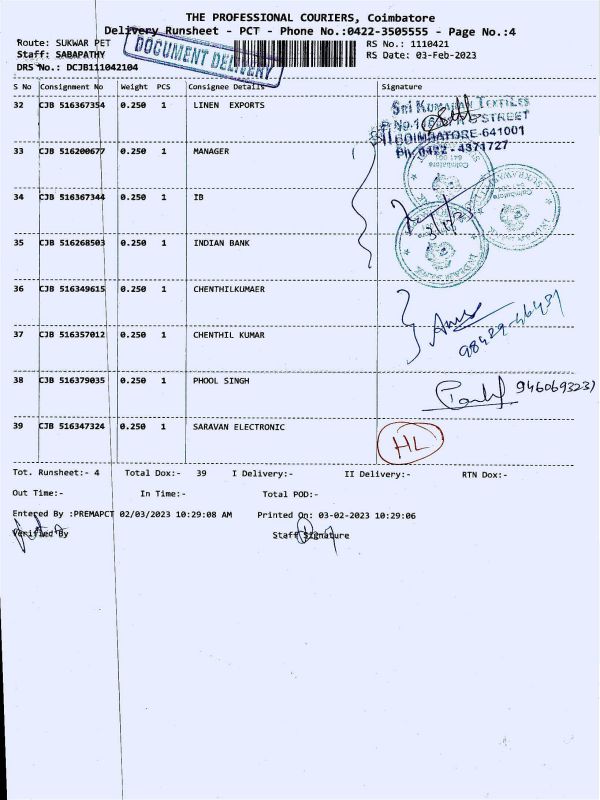 THE PROFESSIONAL COURIERS, Coimbatore
Delivery Runsheet - PCT - Phone No.:0422-3505555 - Page No.:4
Route: SUKWAR PET
RS No.: 1110421
Staff: SABAPATHY
RS Date: 03-Feb-2023
DRS No.: DCJB111042104
DOCUMENT DELIVERY
S No Consignment No Weight PCS Consignee Details Signature
32 CJB 516367354 0.250 1 LINEN EXPORTS
SRI KUMARAN TEXTILES
STREET
COIMBATORE-641001
Ph: 0422 - 4371727
33 CJB 516200677 0.250 1 MANAGER
34 CJB 516367344 0.250 1 IB
35 CJB 516268503 0.250 1 INDIAN BANK
36 CJB 516349615 0.250 1 CHENTHILKUMAER
37 CJB 516357012 0.250 1 CHENTHIL KUMAR
38 CJB 516379035 0.250 1 PHOOL SINGH
39 CJB 516347324 0.250 1 SARAVAN ELECTRONIC
HL
Tot. Runsheet:- 4 Total Dox:- 39 I Delivery:- II Delivery:- RTN Dox:-
Out Time:- In Time:- Total POD:-
Entered By :PREMAPCT 02/03/2023 10:29:08 AM Printed On: 03-02-2023 10:29:06
Verified By Staff Signature